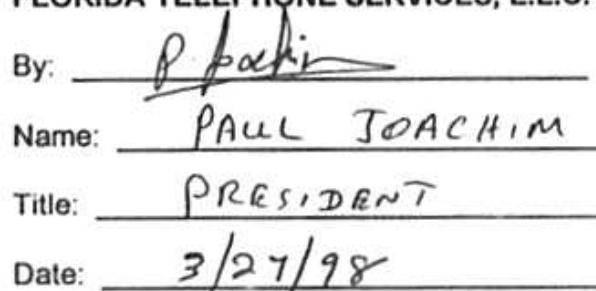 FLORIDA TELEPHONE SERVICES, L.L.C.
By: P. Joachim
Name: PAUL JOACHIM
Title: PRESIDENT
Date: 3/27/98